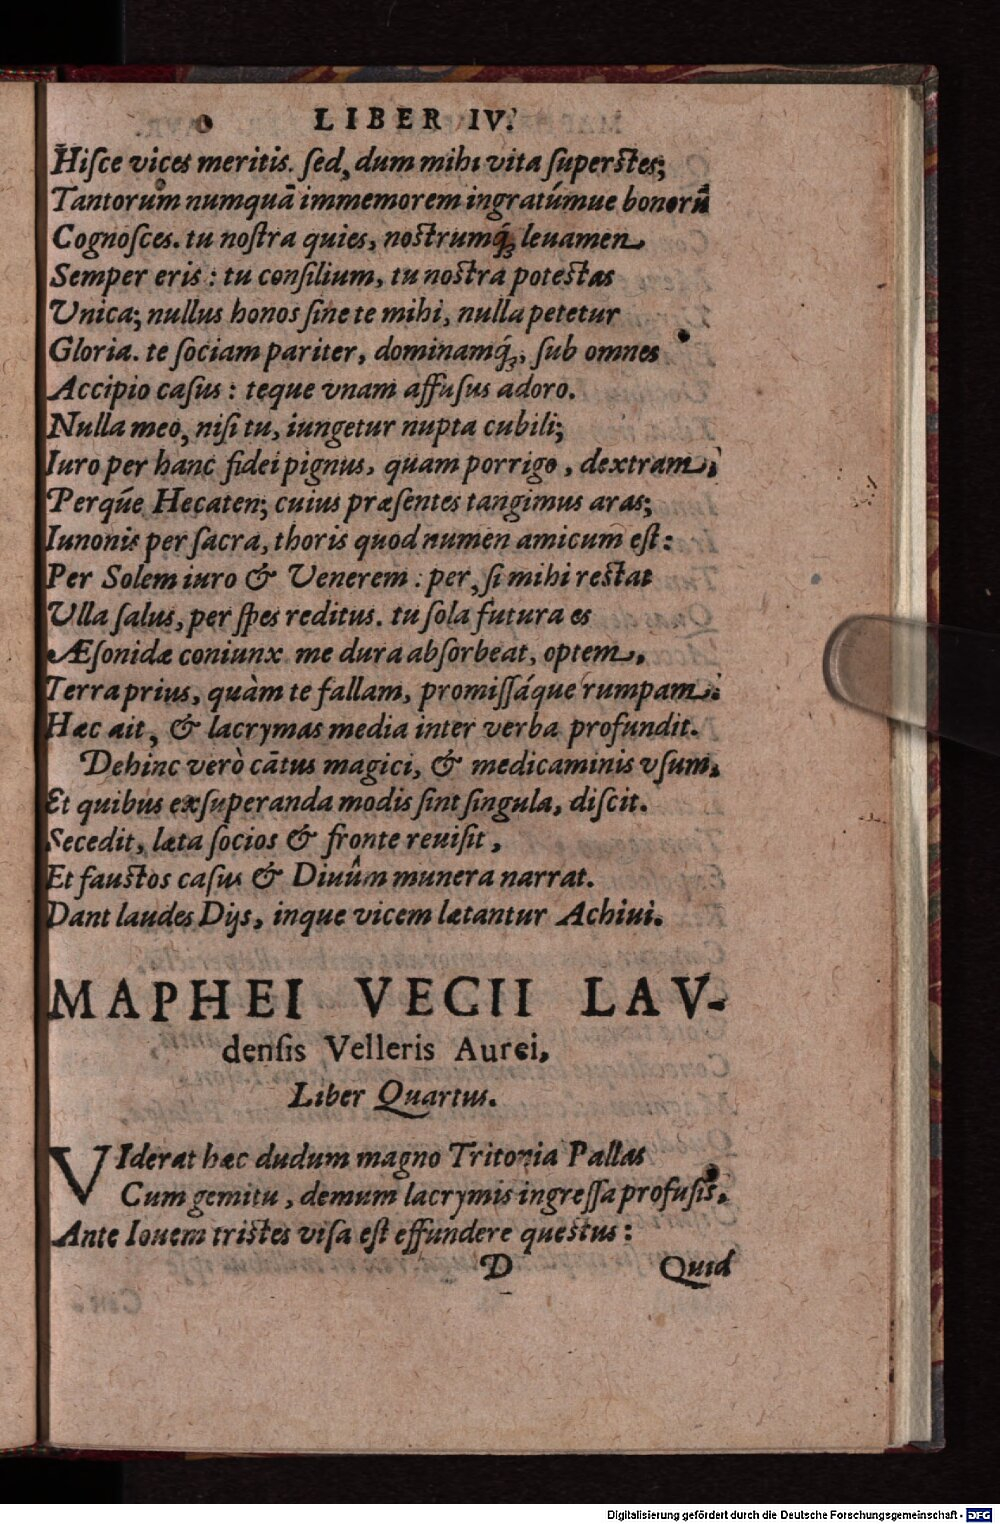 LIBER IV.
Hisce vices meritis. sed, dum mihi vita superstes;
Tantorum numquã immemorem ingratúmue bonorũ
Cognosces. tu nostra quies, nostrumq́; leuamen,
Semper eris: tu consilium, tu nostra potestas
Unica; nullus honos sine te mihi, nulla petetur
Gloria. te sociam pariter, dominamq́;, sub omnes
Accipio casus: teque vnam affusus adoro.
Nulla meo, nisi tu, iungetur nupta cubili;
Iuro per hanc fidei pignus, quam porrigo, dextram;
Perque Hecaten; cuius præsentes tangimus aras;
Iunonis per sacra, thoris quod numen amicum est:
Per Solem iuro & Venerem: per, si mihi restat
Ulla salus, per spes reditus. tu sola futura es
Æsonidæ coniunx me dura absorbeat, optem,
Terra prius, quàm te fallam, promissáque rumpam.
Hæc ait, & lacrymas media inter verba profundit.
Dehinc verò cãtus magici, & medicaminis vsum,
Et quibus exsuperanda modis sint singula, discit.
Secedit, læta socios & fronte reuisit,
Et faustos casus & Diuûm munera narrat.
Dant laudes Dijs, inque vicem lætantur Achiui.
MAPHEI VEGII LAV-
densis Velleris Aurei,
Liber Quartus.
VIderat hæc dudum magno Tritonia Pallas
Cum gemitu, demum lacrymis ingressa profusis,
Ante Iouem tristes visa est effundere questus:
D Quid
Digitalisierung gefördert durch die Deutsche Forschungsgemeinschaft - DFG